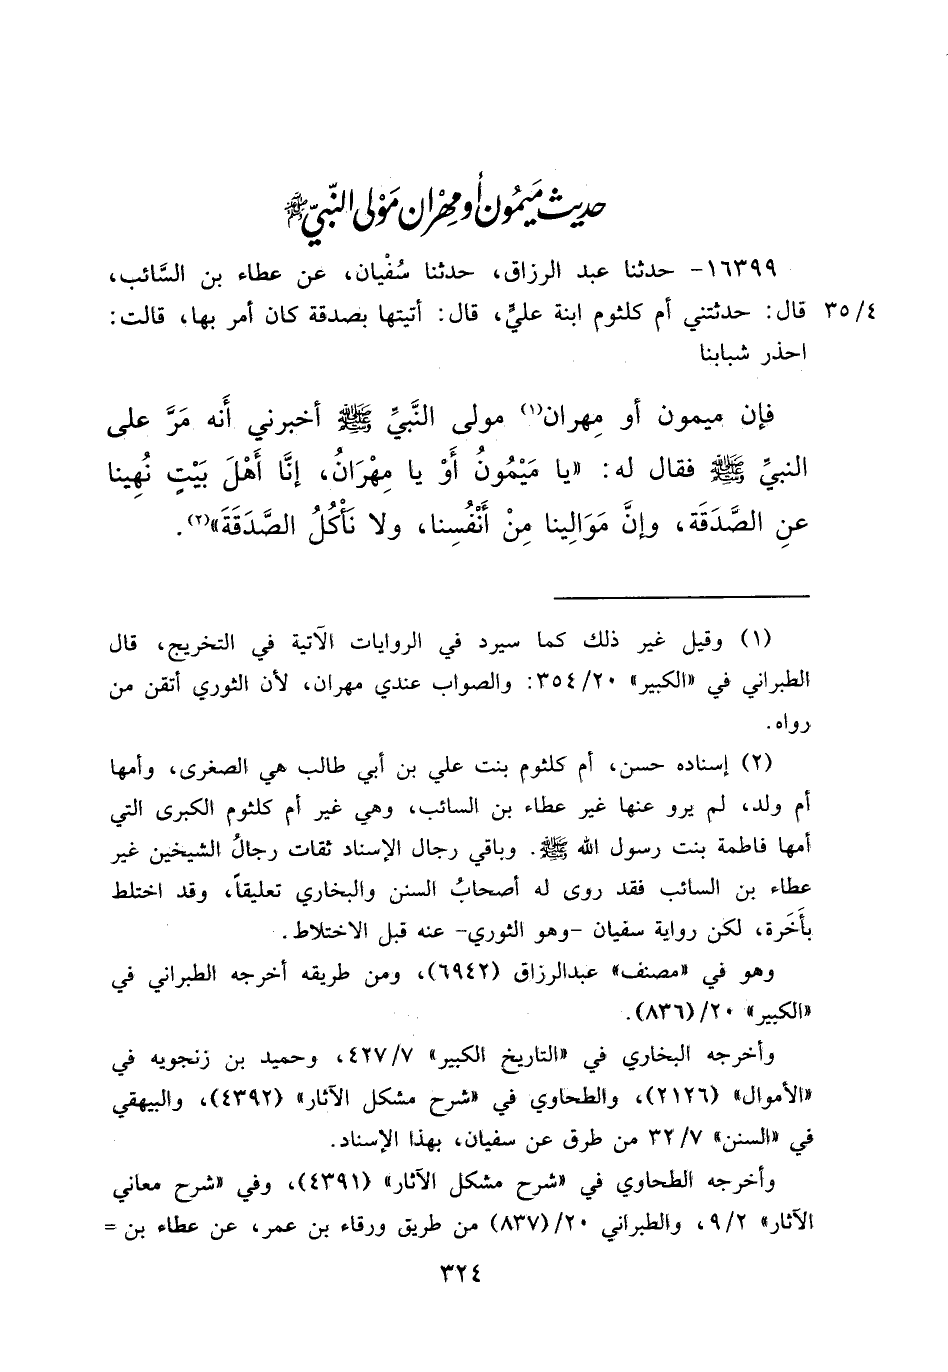 حديث ميمون أو مهران مولى النبي ﷺ
١٦٣٩٩- حدثنا عبد الرزاق، حدثنا سُفْيان، عن عطاء بن السَّائب،
٣٥/٤ قال: حدثتني أم كلثوم ابنة عليٍّ، قال: أتيتها بصدقة كان أمر بها، قالت:
احذر شبابنا
فإن ميمون أو مِهران(١) مولى النَّبيِّ ﷺ أخبرني أَنه مَرَّ على
النبيِّ ﷺ فقال له: «يا مَيْمُونُ أَوْ يا مِهْرَانُ، إنَّا أَهْلَ بَيْتٍ نُهِينا
عنِ الصَّدَقَة، وإنَّ مَوَالِينا مِنْ أَنْفُسِنا، ولا نَأْكُلُ الصَّدَقَةَ»(٢).
(١) وقيل غير ذلك كما سيرد في الروايات الآتية في التخريج، قال
الطبراني في «الكبير» ٣٥٤/٢٠: والصواب عندي مهران، لأن الثوري أتقن من
رواه.
(٢) إسناده حسن، أم كلثوم بنت علي بن أبي طالب هي الصغرى، وأمها
أم ولد، لم يرو عنها غير عطاء بن السائب، وهي غير أم كلثوم الكبرى التي
أمها فاطمة بنت رسول الله ﷺ. وباقي رجال الإسناد ثقات رجالُ الشيخين غير
عطاء بن السائب فقد روى له أصحابُ السنن والبخاري تعليقاً، وقد اختلط
بأَخَرة، لكن رواية سفيان -وهو الثوري- عنه قبل الاختلاط.
وهو في «مصنف» عبدالرزاق (٦٩٤٢)، ومن طريقه أخرجه الطبراني في
«الكبير» ٢٠/(٨٣٦).
وأخرجه البخاري في «التاريخ الكبير» ٤٢٧/٧، وحميد بن زنجويه في
«الأموال» (٢١٢٦)، والطحاوي في «شرح مشكل الآثار» (٤٣٩٢)، والبيهقي
في «السنن» ٣٢/٧ من طرق عن سفيان، بهذا الإسناد.
وأخرجه الطحاوي في «شرح مشكل الآثار» (٤٣٩١)، وفي «شرح معاني
الآثار» ٩/٢، والطبراني ٢٠/(٨٣٧) من طريق ورقاء بن عمر، عن عطاء بن =
٣٢٤